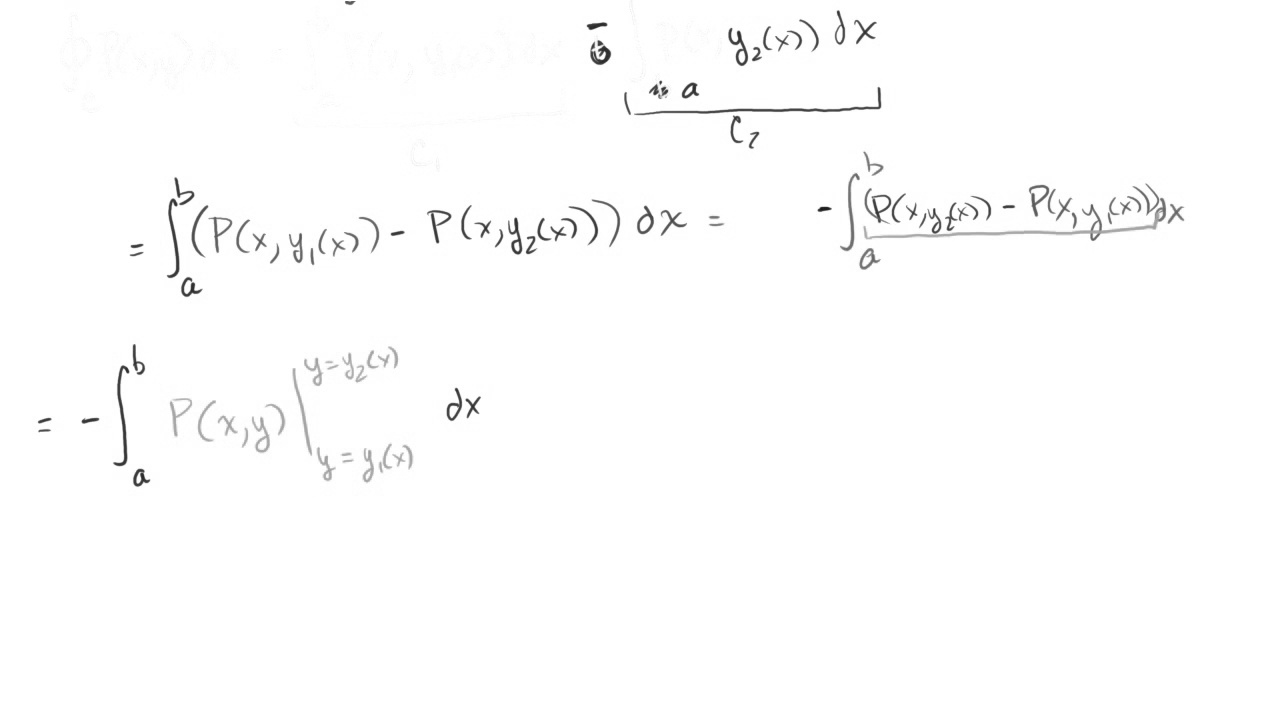 ∮_C P(x,y) dx = P(x, y₁(x)) dx - ∫_a P(x, y₂(x)) dx
C₁ C₂
= ∫_a^b (P(x, y₁(x)) - P(x,y₂(x))) dx = - ∫_a^b (P(x,y₂(x)) - P(x,y₁(x))) dx
= - ∫_a^b P(x,y) |_{y = y₁(x)}^{y=y₂(x)} dx